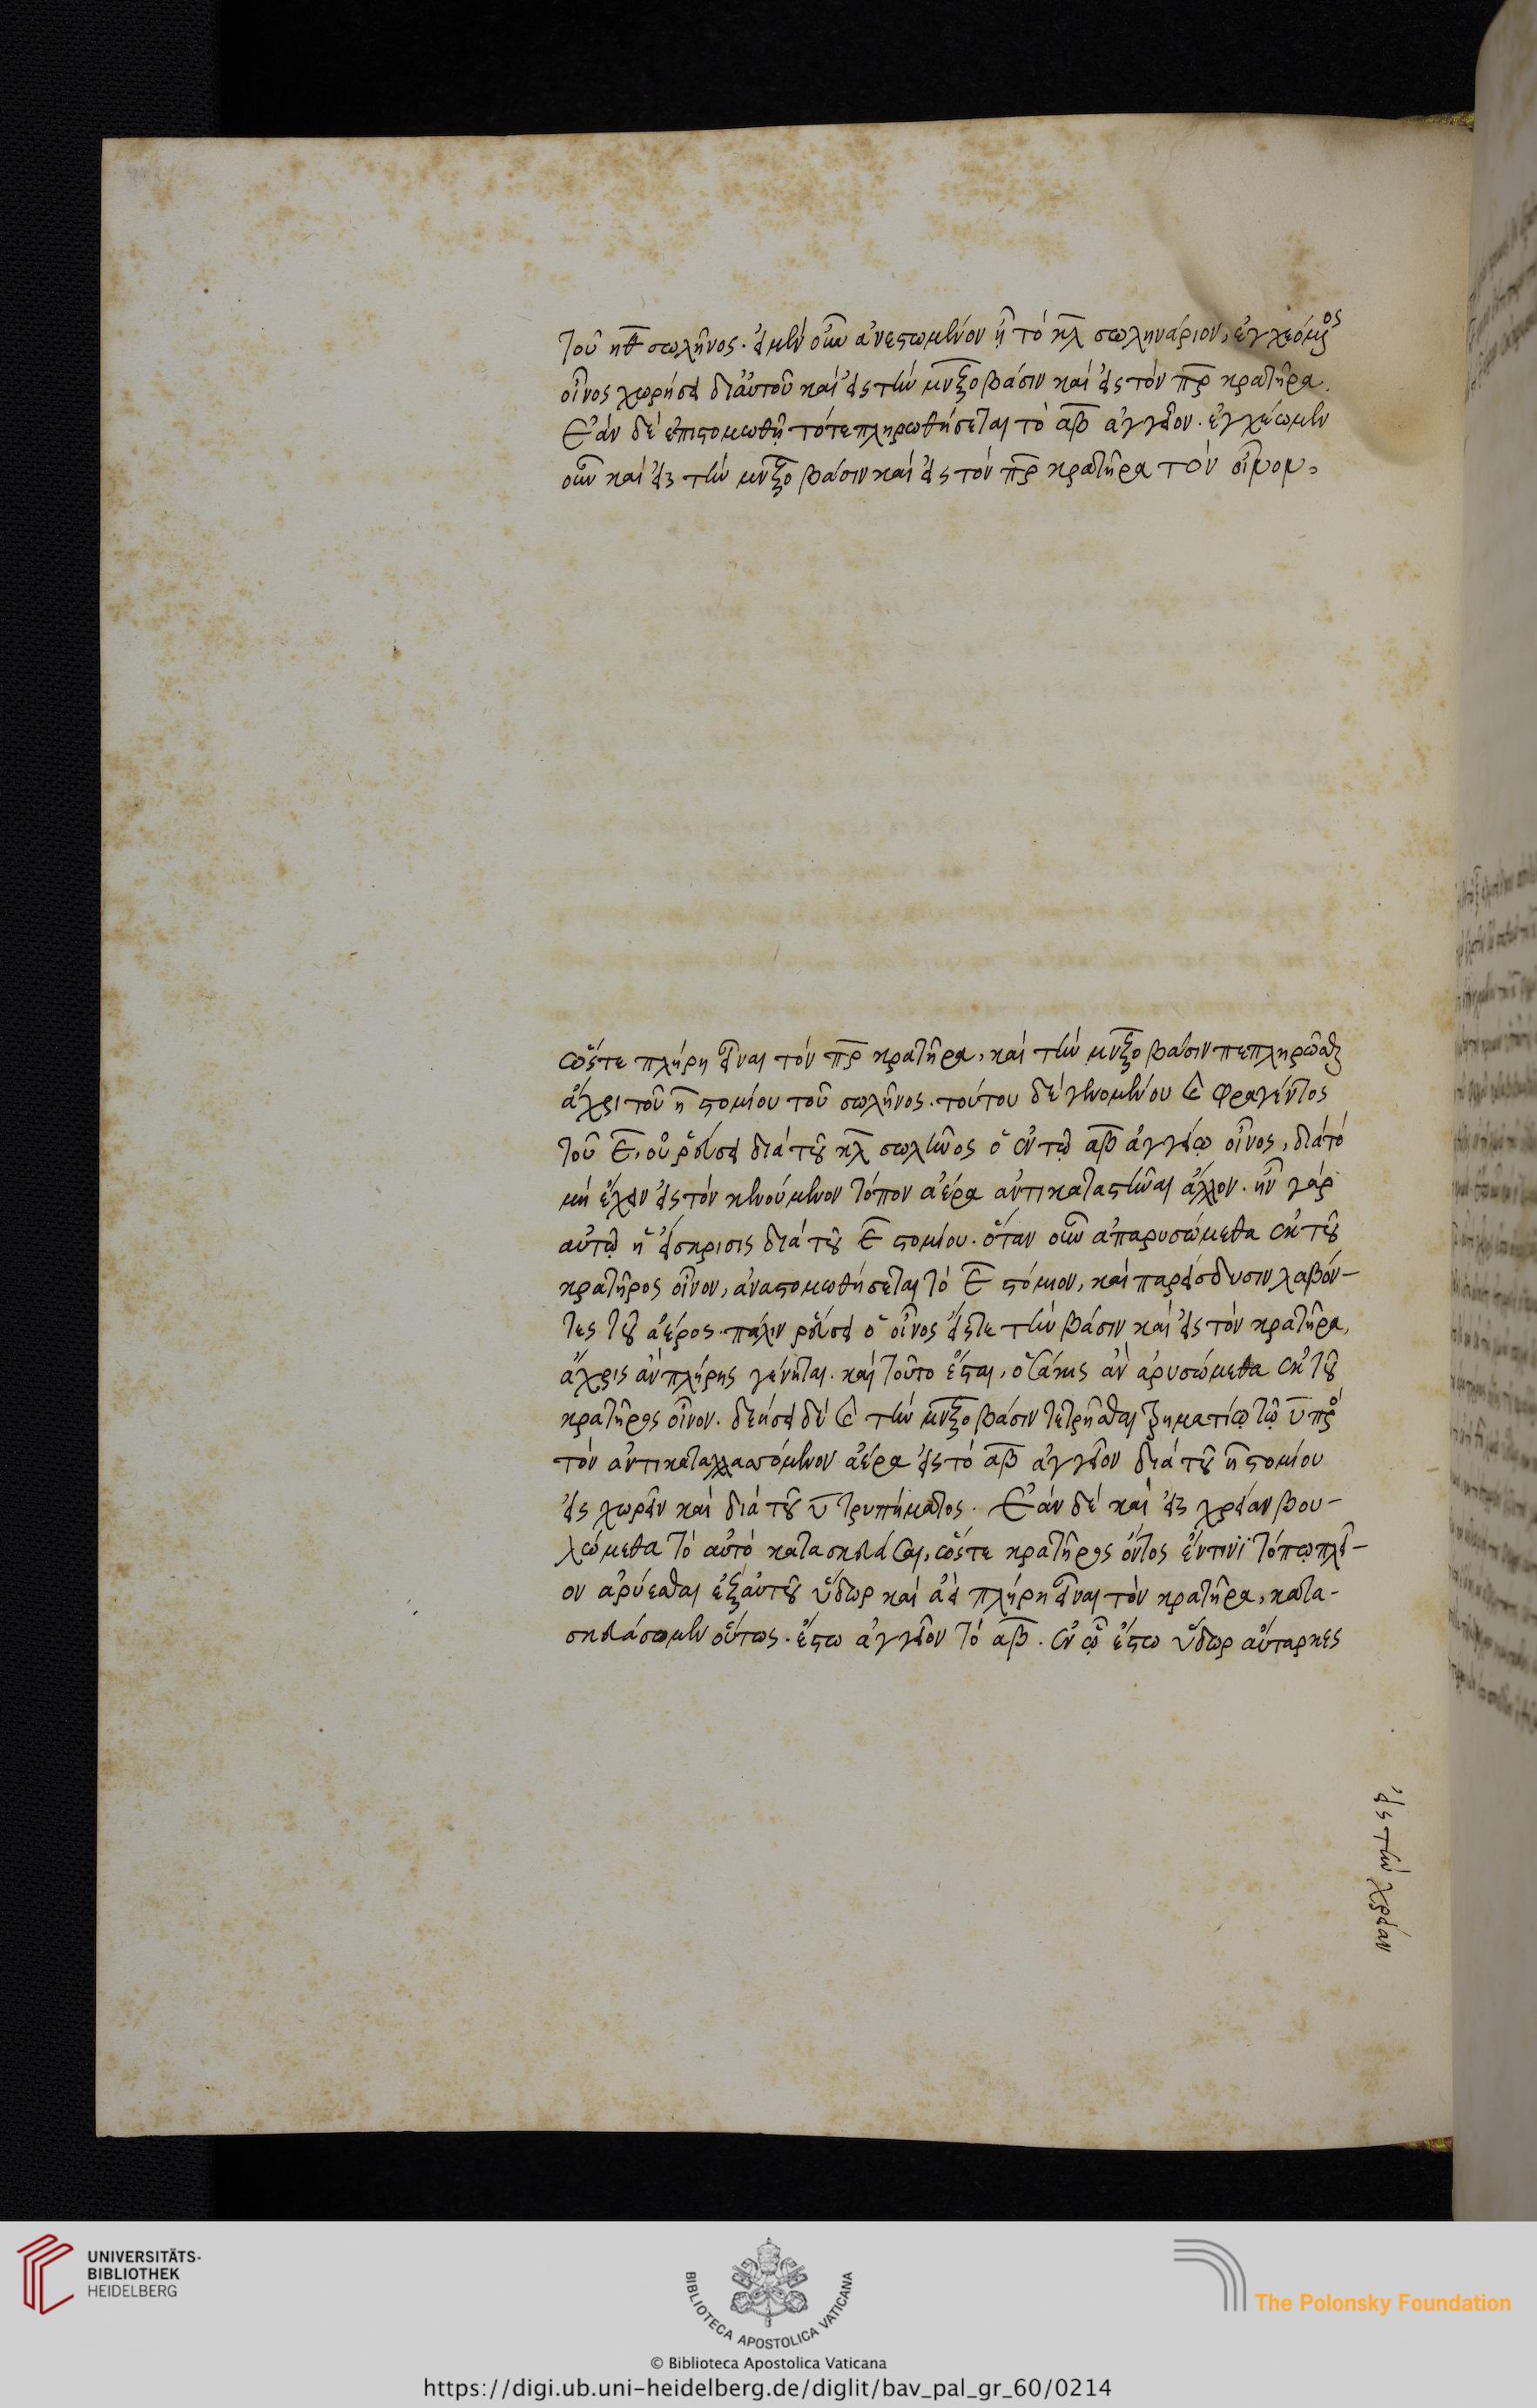 τοῦ ηθ σωλῆνος. εἰ μὲν οὖν ἀνεστωμένον ᾖ τὸ κλ σωληνάριον, ἐγχεόμενος
οἶνος χωρήσει διαὐτοῦ καὶ εἰς τὴν μνξο βάσιν καὶ εἰς τὸν πρ κρατῆρα.
Ἐὰν δὲ ἐπιστομωθῇ τότε πληρωθήσεται τὸ αβ ἀγγεῖον. ἐγχέωμεν
οὖν καὶ εἰς τὴν μνξο βάσιν καὶ εἰς τὸν πρ κρατῆρα τὸν οἶνον,
ὥστε πλήρη εἶναι τὸν πρ κρατῆρα, καὶ τὴν μνξο βάσιν πεπληρῶσθαι
ἄχρι τοῦ η στομίου τοῦ σωλῆνος. τούτου δὲ γενομένου καὶ φραγέντος
τοῦ ε, οὐ ῥεύσει διὰ τοῦ κλ σωλῆνος ὁ ἐν τῷ αβ ἀγγείῳ οἶνος, διὰ τὸ
μὴ ἔχειν εἰς τὸν κενούμενον τόπον ἀέρα ἀντικαταστῆναι ἄλλον. ἦν γὰρ
αὐτῷ ἡ εἴσκρισις διὰ τοῦ ε στομίου. ὅταν οὖν ἀπαρυσώμεθα ἐκ τοῦ
κρατῆρος οἶνον, ἀναστομωθήσεται τὸ ε στόμιον, καὶ παρείσδυσιν λαβόν-
τες τοῦ ἀέρος. πάλιν ῥεύσει ὁ οἶνος εἴς τε τὴν βάσιν καὶ εἰς τὸν κρατῆρα,
ἄχρις ἂν πλήρης γένηται. καὶ τοῦτο ἔσται, ὁσάκις ἂν ἀρυσώμεθα ἐκ τοῦ
κρατῆρος οἶνον. δεήσει δὲ καὶ τὴν μνξο βάσιν τετρῆσθαι τρηματίῳ τῷ υ πρὸς
τὸν ἀντικαταλλασσόμενον ἀέρα εἰς τὸ αβ ἀγγεῖον διὰ τοῦ η στομίου
εἰς χωρεῖν καὶ διὰ τοῦ υ τρυπήματος. Ἐὰν δὲ καὶ εἰς χρείαν βου-
λώμεθα τὸ αὐτὸ κατασκευάσαι, ὥστε κρατῆρος ὄντος ἔν τινι τόπῳ πλεῖ-
ον ἀρύεσθαι ἐξ αὐτοῦ ὕδωρ καὶ ἀεὶ πλήρη εἶναι τὸν κρατῆρα, κατα-
σκευάσομεν οὕτως. ἔστω ἀγγεῖον τὸ αβ. ἐν ᾧ ἔστω ὕδωρ αὔταρκες
εἰς τὴν χρείαν
UNIVERSITÄTS-
BIBLIOTHEK
HEIDELBERG
BIBLIOTECA APOSTOLICA VATICANA
© Biblioteca Apostolica Vaticana
The Polonsky Foundation
https://digi.ub.uni-heidelberg.de/diglit/bav_pal_gr_60/0214